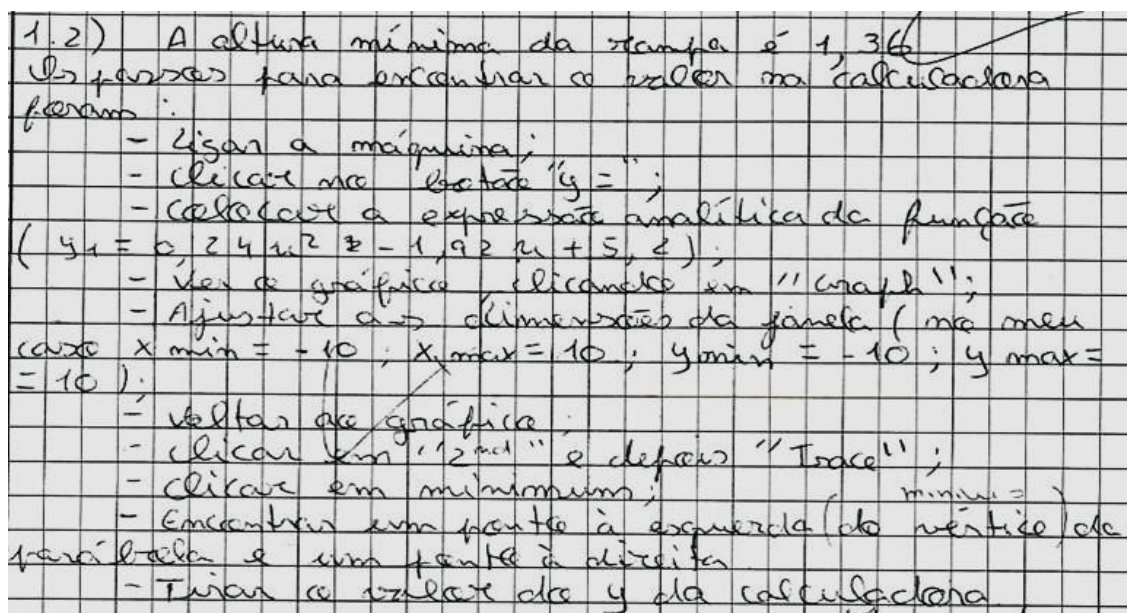 1.2) A altura mínima da rampa é 1,36
Os passos para encontrar o valor na calculadora
foram:
- Ligar a máquina;
- clicar no botão "y =";
- colocar a expressão analítica da função
( y1 = 0,24 x² - 1,92 x + 5,2 );
- Ver o gráfico, clicando em "Graph";
- Ajustar as dimensões da janela ( no meu
caso x min = -10 ; x max = 10 ; y min = -10 ; y max =
= 10 );
- Voltar ao gráfico;
- clicar em "2nd" e depois "Trace";
- clicar em minimum;
- Encontrar um ponto à esquerda (do vértice) da
parábola e um ponto à direita
- Tirar o valor do y da calculadora